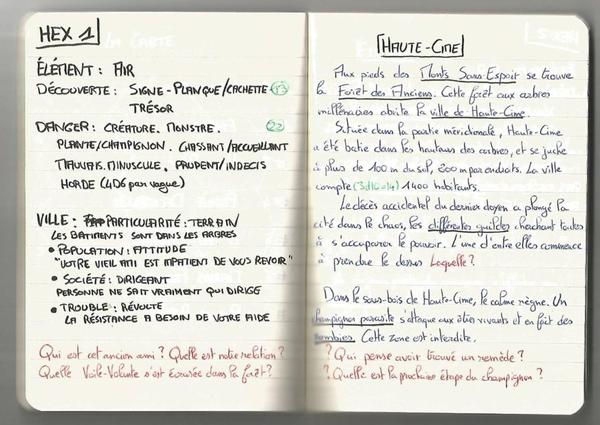 HEX 1
ÉLÉMENT : AIR
DÉCOUVERTE : SIGNE-PLANQUE/CACHETTE 13
TRÉSOR
DANGER : CRÉATURE. MONSTRE. 22
PLANTE/CHAMPIGNON. CHASSANT/ACCUEILLANT
MAUVAIS. MINUSCULE. PRUDENT/INDECIS
HORDE (4D6 par vague)
VILLE : PARTICULARITÉ : TERRAIN
LES BÂTIMENTS SONT DANS LES ARBRES
• POPULATION : ATTITUDE
"VOTRE VIEIL AMI EST IMPATIENT DE VOUS REVOIR"
• SOCIÉTÉ : DIRIGEANT
PERSONNE NE SAIT VRAIMENT QUI DIRIGE
• TROUBLE : RÉVOLTE
LA RÉSISTANCE A BESOIN DE VOTRE AIDE
Qui est cet ancien ami ? Quelle est notre relation ?
Quelle Voile-Volante s'est écrasée dans la forêt ?
HAUTE-CIME
Aux pieds des Monts Sans-Espoir se trouve
la Forêt des Anciens. Cette forêt aux arbres
millénaires abrite la ville de Haute-Cime.
Située dans la partie méridionale, Haute-Cime
a été batie dans les hauteurs des arbres, et se juche
à plus de 100 m du sol, 200 m par endroits. La ville
compte (3d10=14) 1400 habitants.
Le décès accidentel du dernier doyen a plongé la
cité dans le chaos, les différentes guildes cherchant toutes
à s'accaparer le pouvoir. L'une d'entre elles commence
à prendre le dessus Laquelle ?
Dans le sous-bois de Haute-Cime, le calme règne. Un
champignon parasite s'attaque aux êtres vivants et en fait des
zombies. Cette zone est interdite.
? Qui pense avoir trouvé un remède ?
? Quelle est la prochaine étape du champignon ?